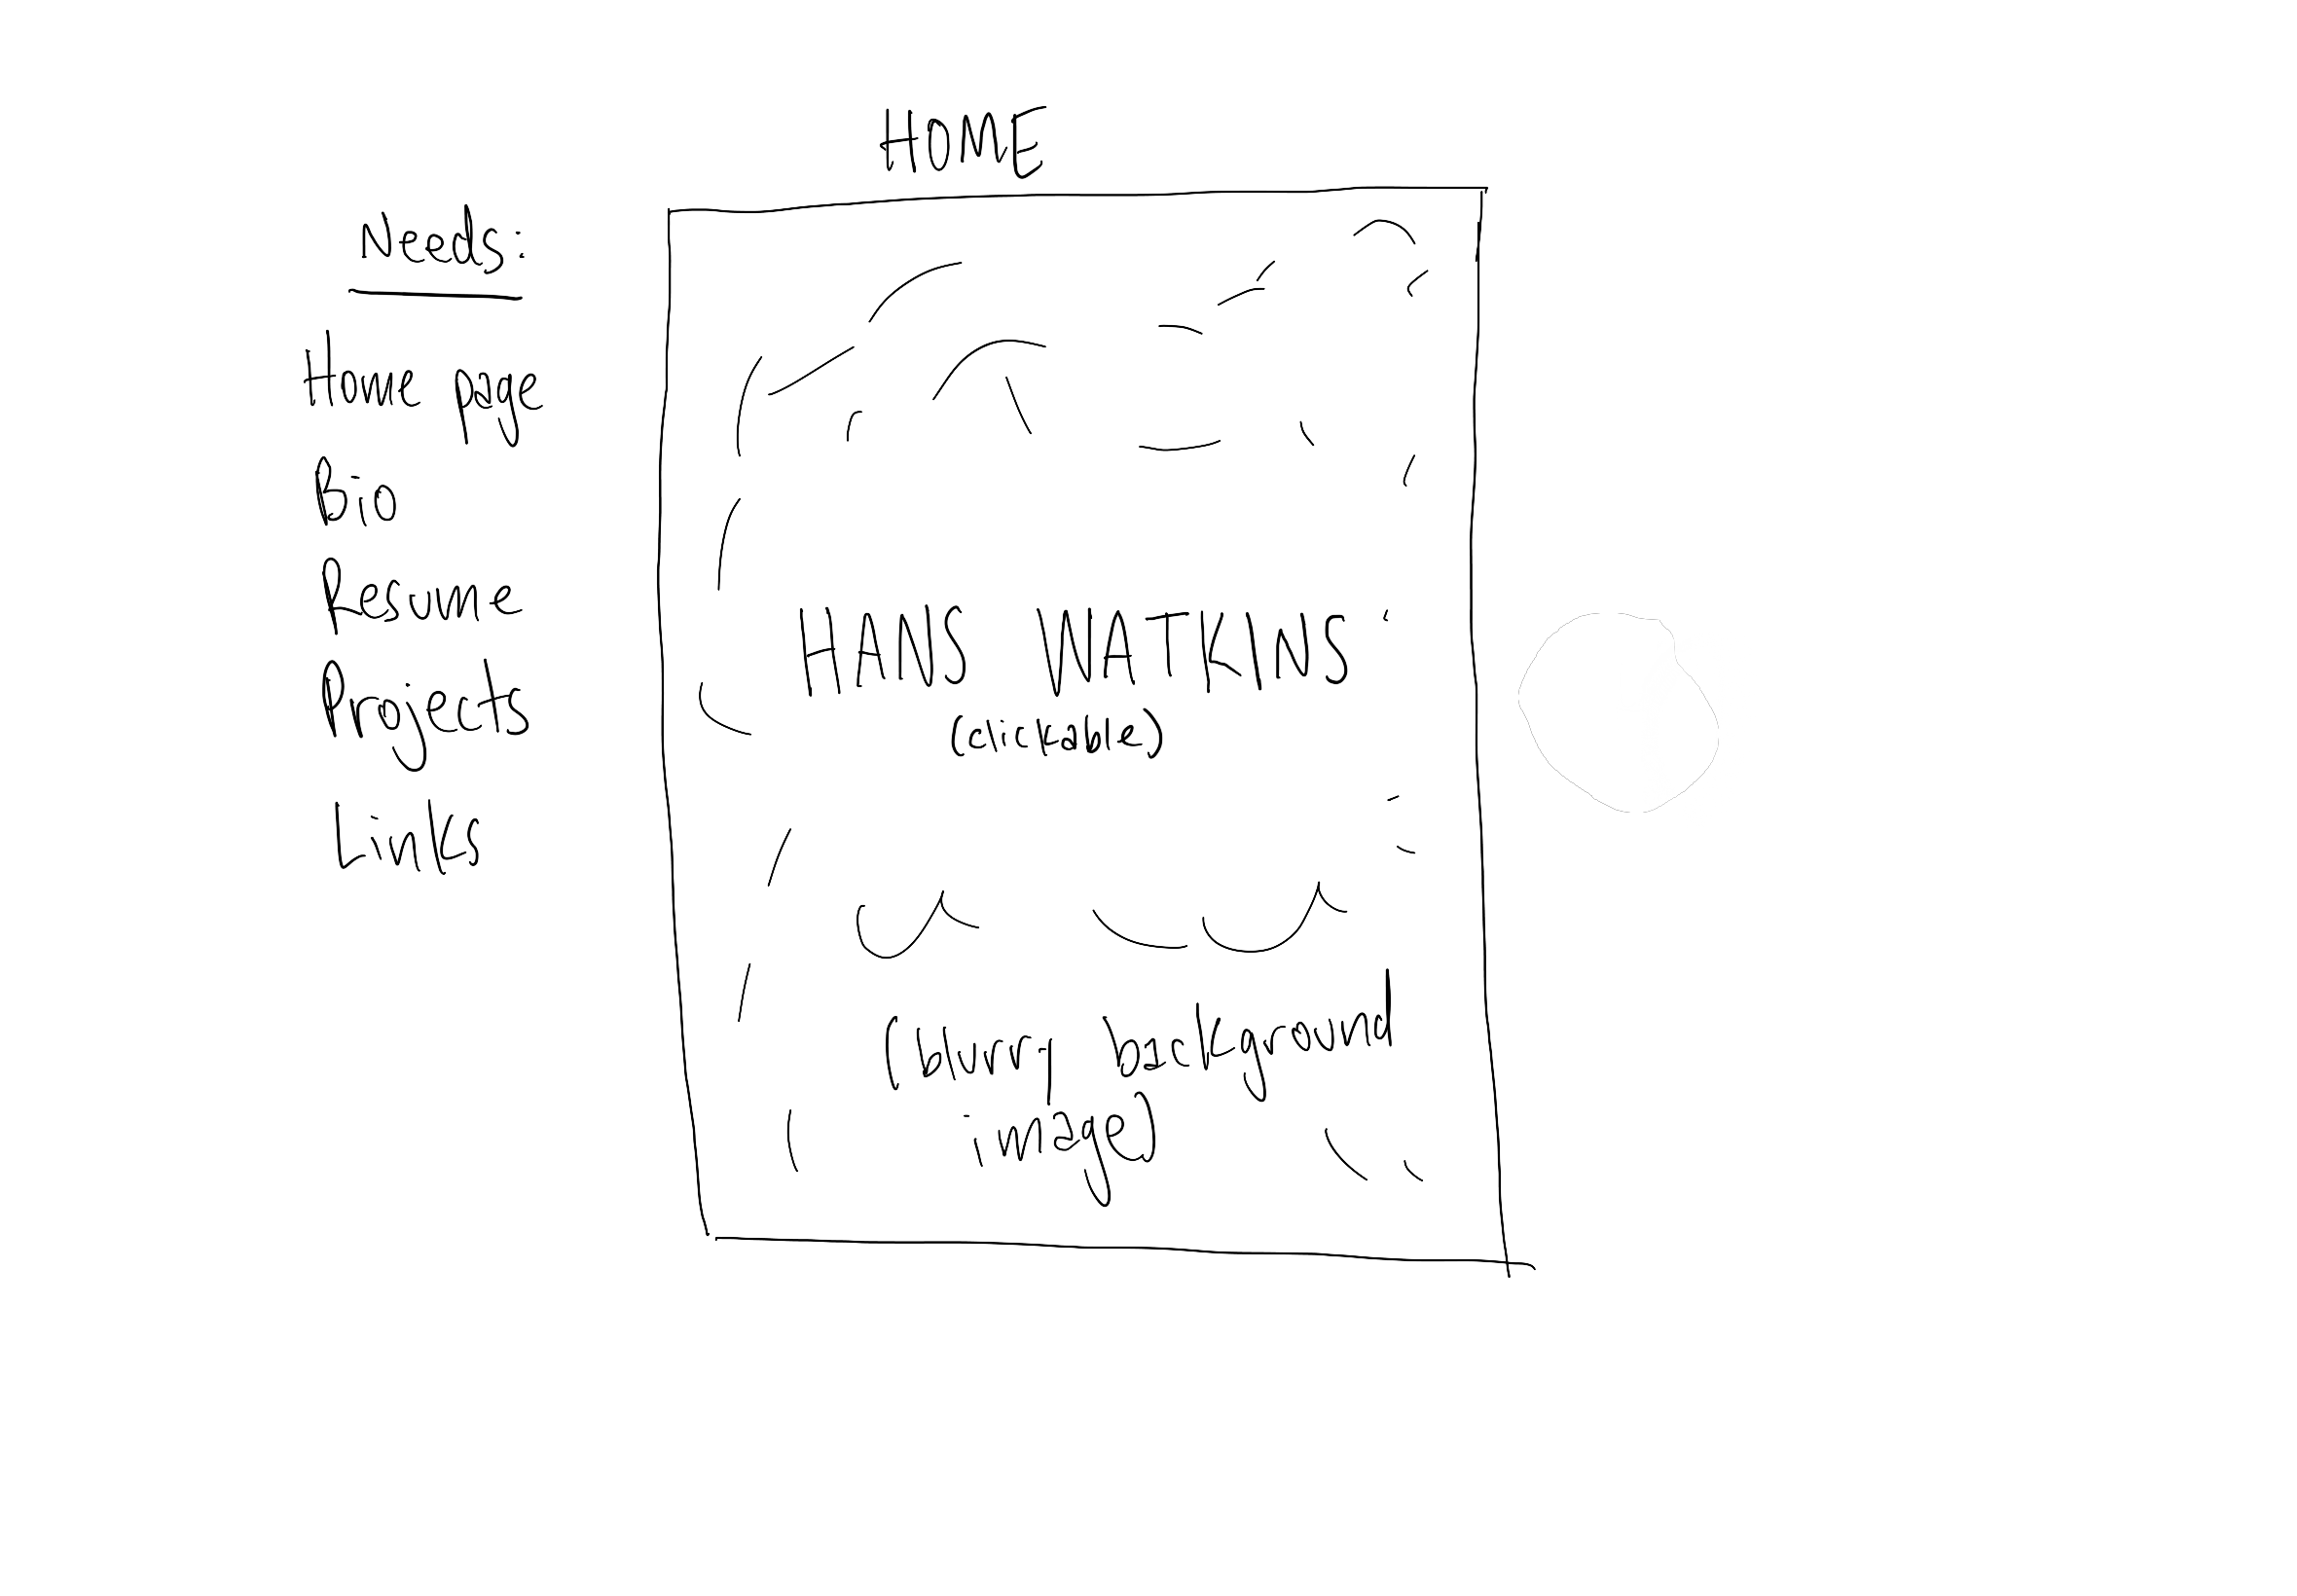 HOME
Needs:
Home page
Bio
Resume
Projects
Links
HANS WATKINS
(clickable)
(blurry background
image)